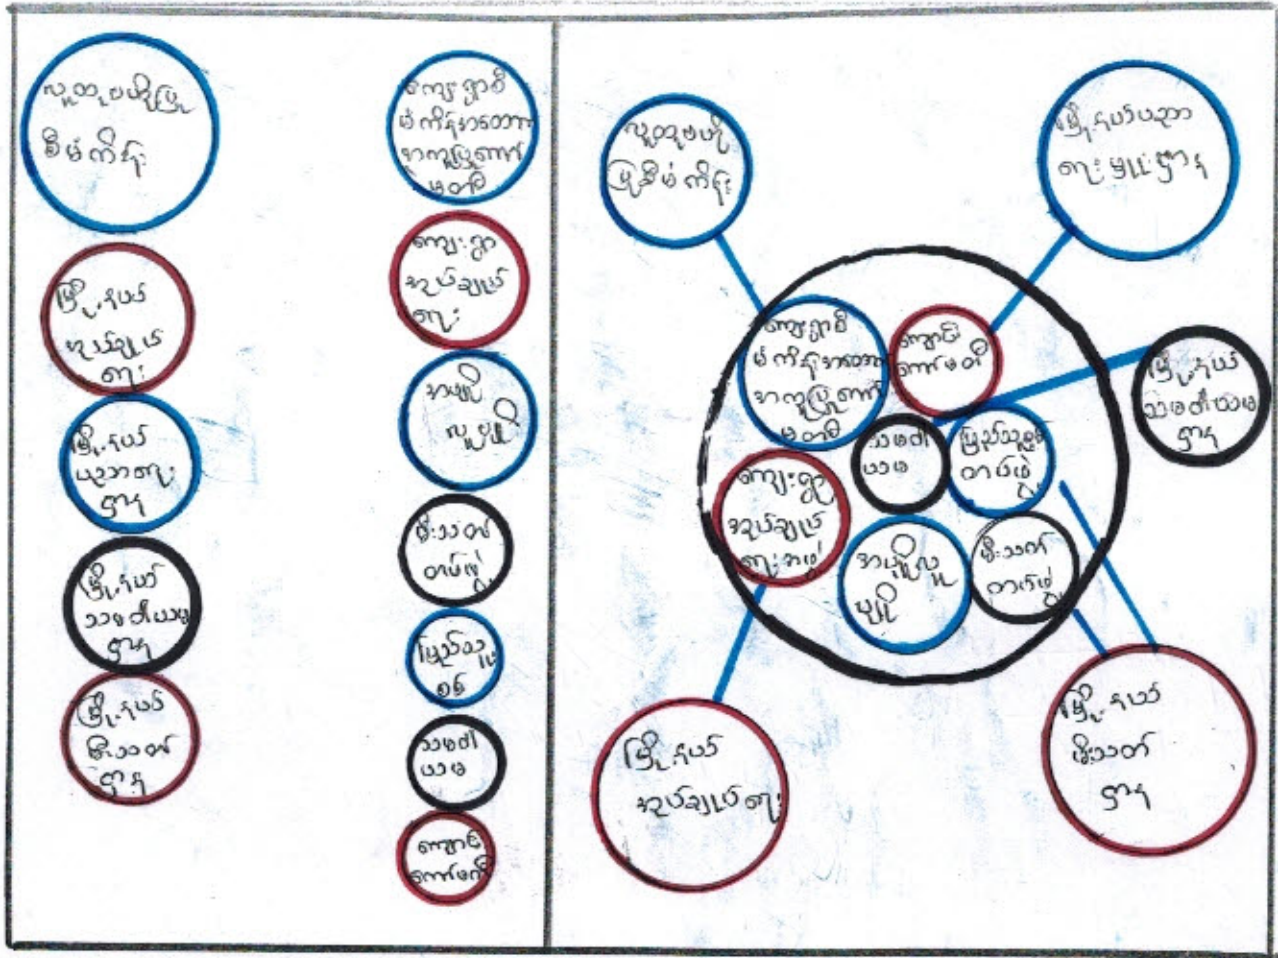 လူထုဗဟိုပြု
စီမံကိန်း
မြို့နယ်
အုပ်ချုပ်
ရေး
မြို့နယ်
ပညာရေး
ဌာန
မြို့နယ်
သမဝါယမ
ဌာန
မြို့နယ်
မီးသတ်
ဌာန
ကျေးရွာစီ
မံကိန်းအထောက်
အကူပြုကော်
မတီ
ကျေးရွာ
အုပ်ချုပ်
ရေး
မီးသတ်
တပ်ဖွဲ့
ပြည်သူ့
စစ်
သမဝါ
ယမ
ကျောင်း
ကော်မတီ
လူထုဗဟို
ပြုစီမံကိန်း
မြို့နယ်ပညာ
ရေးမှူးဌာန
ကျေးရွာစီ
မံကိန်းအထောက်
အကူပြုကော်
မတီ
ကျောင်း
ကော်မတီ
မြို့နယ်
သမဝါယမ
ဌာန
သမဝါ
ယမ
ပြည်သူ့စစ်
တပ်ဖွဲ့
ကျေးရွာ
အုပ်ချုပ်
ရေးအဖွဲ့
မီးသတ်
တပ်ဖွဲ့
မြို့နယ်
အုပ်ချုပ်ရေး
မြို့နယ်
မီးသတ်
ဌာန